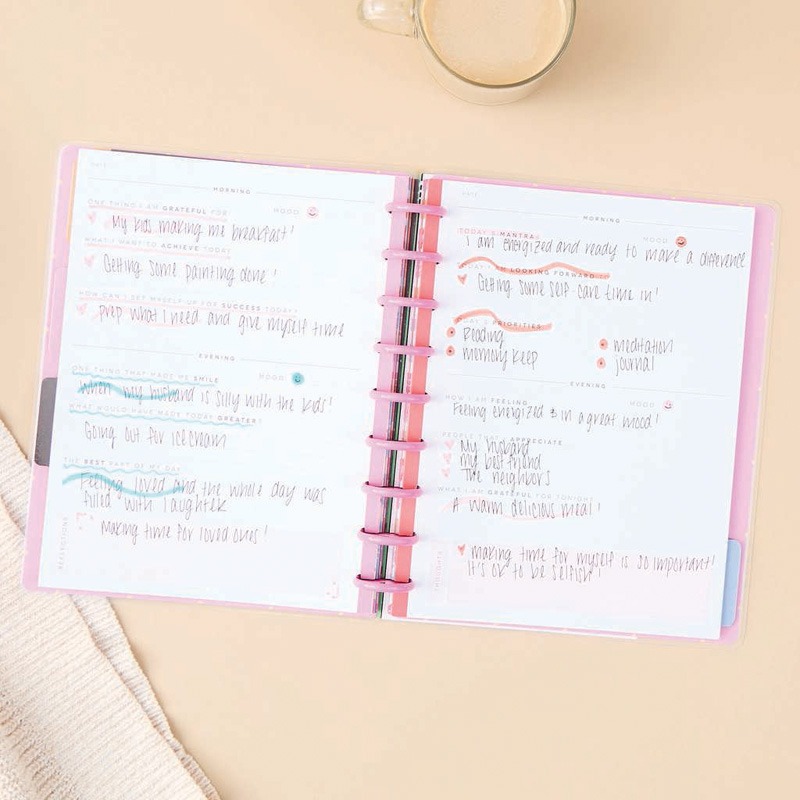 DATE
MORNING
ONE THING I AM GRATEFUL FOR:
MOOD
My kids making me breakfast!
WHAT I WANT TO ACHIEVE TODAY:
Getting some painting done!
HOW CAN I SET MYSELF UP FOR SUCCESS TODAY?
prep what I need and give myself time
EVENING
ONE THING THAT MADE ME SMILE
MOOD
When my husband is silly with the kids!
WHAT WOULD HAVE MADE TODAY GREATER?
Going out for ice cream
THE BEST PART OF MY DAY
Feeling loved and the whole day was
filled with laughter
REFLECTIONS
making time for loved ones!
DATE
MORNING
TODAY'S MANTRA
MOOD
I am energized and ready to make a difference
TODAY I AM LOOKING FORWARD
Getting some self care time in!
TODAY'S PRIORITIES
Reading
memory keep
meditation
journal
EVENING
HOW I AM FEELING
MOOD
Feeling energized & in a great mood!
APPRECIATE
My husband
My best friend
The neighbors
WHAT I AM GRATEFUL FOR TONIGHT
A warm delicious meal!
THOUGHTS
making time for myself is so important!
It's ok to be selfish!